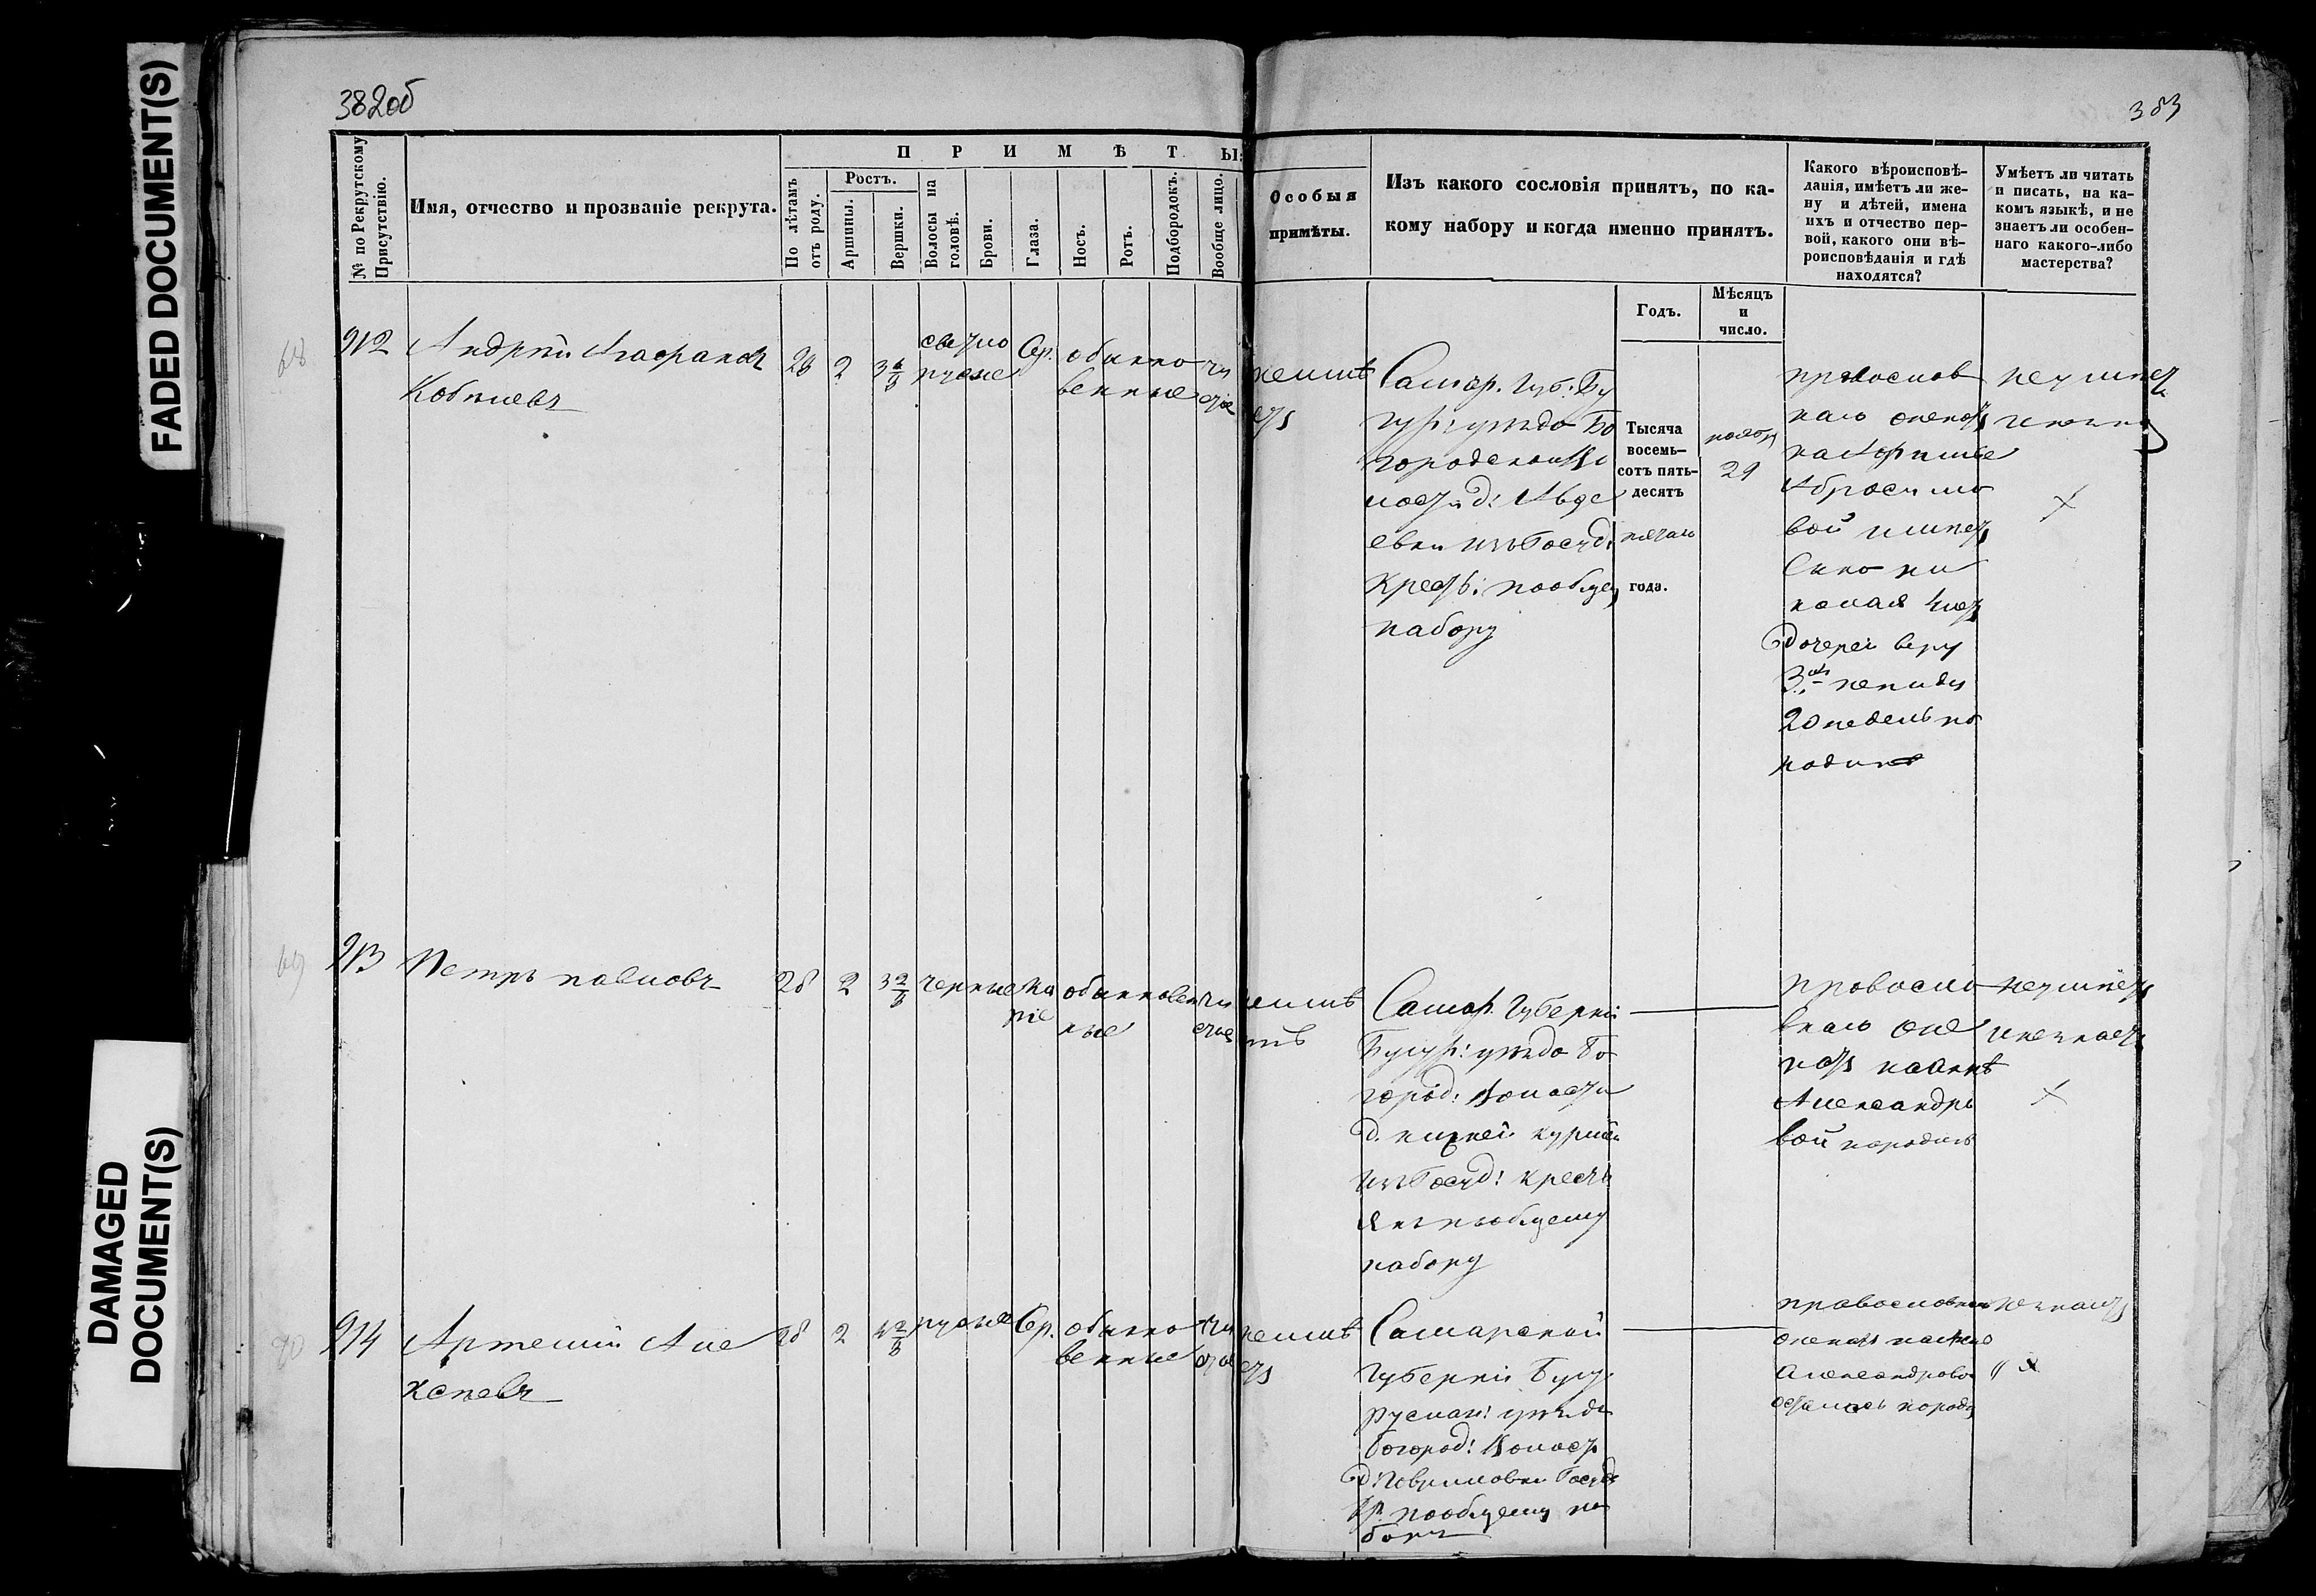 FADED DOCUMENT(S)
DAMAGED
DOCUMENT(S)
382об
383
№ по Рекрутскому
Присутствію.
Имя, отчество и прозваніе рекрута.
ПРИМѢТЫ:
По лѣтамъ
отъ роду.
Ростъ.
Аршины.
Вершки.
Волосы на
головѣ.
Брови.
Глаза.
Носъ.
Ротъ.
Подбородокъ.
Вообще лицо.
Особыя
примѣты.
Изъ какого сословія принятъ, по ка-
кому набору и когда именно принятъ.
Какого вѣроисповѣ-
данія, имѣетъ ли же-
ну и дѣтей, имена
ихъ и отчество пер-
вой, какого они вѣ-
роисповѣданія и гдѣ
находятся?
Умѣетъ ли читать
и писать, на ка-
комъ языкѣ, и не
знаетъ ли особен-
наго какого-либо
мастерства?
Годъ.
Мѣсяцъ
и
число.
68
912
Андрей
28
2
3 6/8
светло
русые
Сер.
обыкно
венные
чи
стое
неимѣ
етъ
Самар. Губ: Бу
гур: уѣзда Бо
городской Во
лости д: Авде
евки изъ Госуд:
Крест: по общем
набору
Тысяча
восемь-
сотъ пять-
десятъ
года.
29
православ
наго женатъ
Абросимо
вой имѣетъ
дочерей веру
3хъ
20 недель на
родине
неумѣет
69
913
Петръ павловъ
28
2
3 2/8
черные
ка
ріе
обыкновен
ные
чи
стое
неимѣ
етъ
Самар. Губерніи
Бугур: уѣзда Бо
город: Волости
д. нижней
изъ Госуд: крестъ
янъ по общему
набору
правосла
внаго же
натъ на аннѣ
Александро
вой народинѣ
неумѣетъ
и незнаетъ
70
914
Артемій Але
ксѣевъ
28
2
4 2/8
русые
Сер.
обыкно
венные
чи
стое
неимѣ
етъ
Самарской
Губерніи Бугу
руслан: уѣзда
Богород: Волост
Госуд
кр. по общему на
бору
православнаго
женатъ
Александрово
осталась народ
незнаетъ